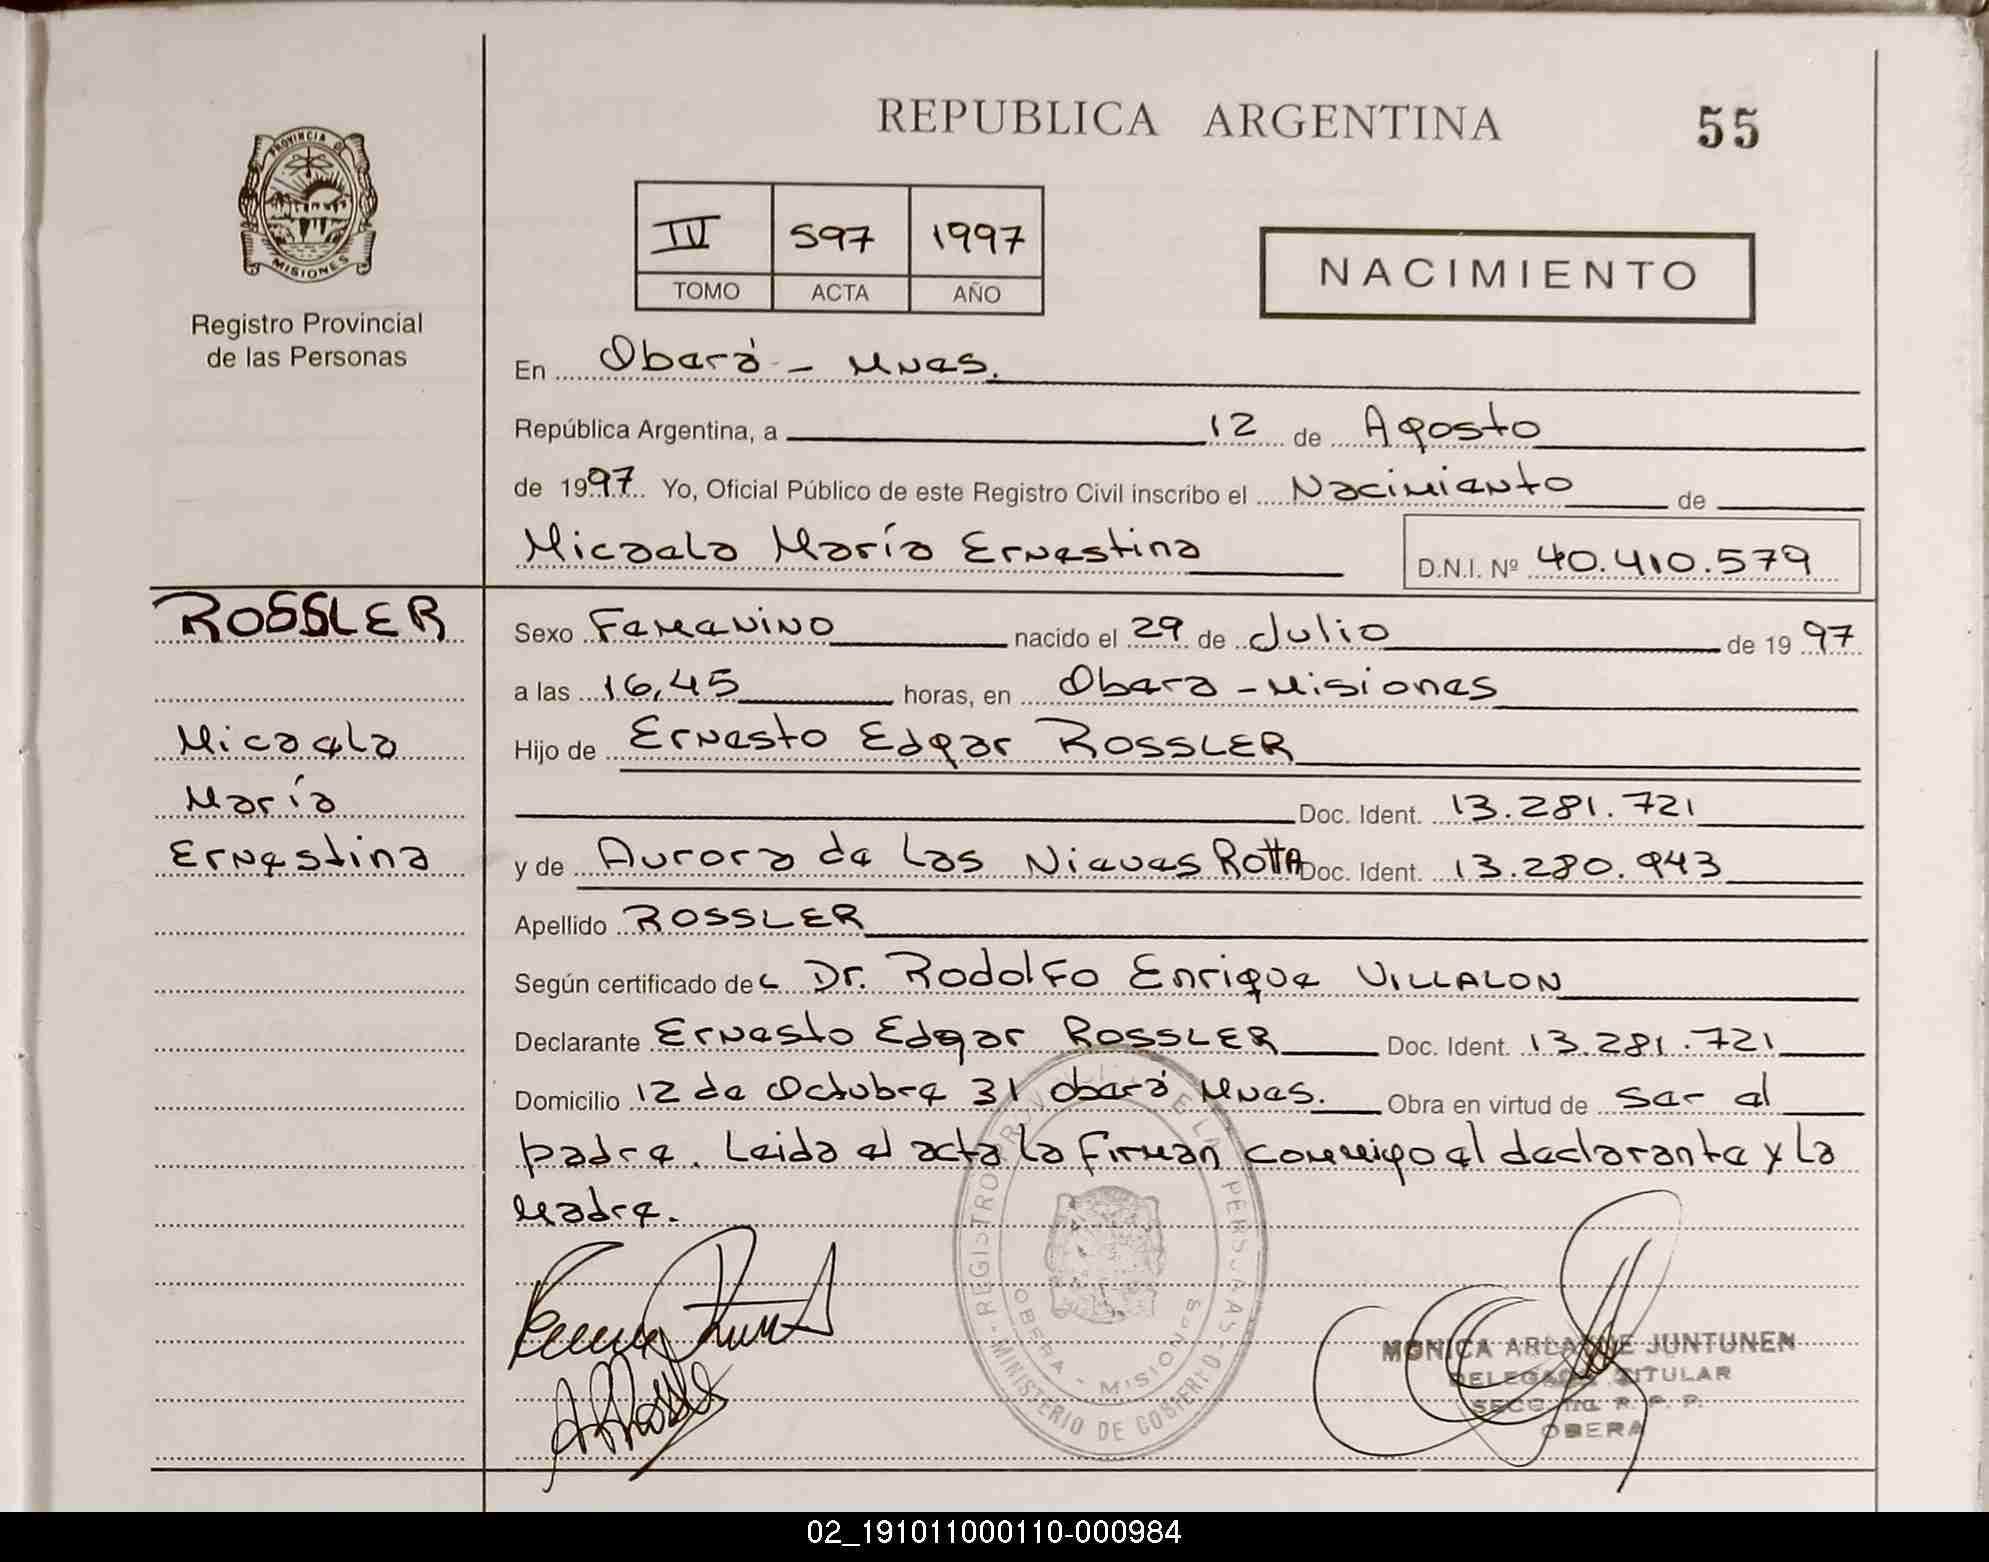 REPUBLICA ARGENTINA
55
PROVINCIA DE
MISIONES
Registro Provincial
de las Personas
IV 597 1997
TOMO ACTA AÑO
NACIMIENTO
En Oberá - Mnes.
República Argentina, a 12 de Agosto
de 1997. Yo, Oficial Público de este Registro Civil inscribo el Nacimiento de
Micaela María Ernestina D.N.I. Nº 40.410.579
ROSSLER
Micaela
María
Ernestina
Sexo Femenino nacido el 29 de Julio de 1997
a las 16,45 horas, en Obera - Misiones
Hijo de Ernesto Edgar ROSSLER
Doc. Ident. 13.281.721
y de Aurora de Las Nieves ROTTA Doc. Ident. 13.280.943
Apellido ROSSLER
Según certificado de Dr. Rodolfo Enrique VILLALON
Declarante Ernesto Edgar ROSSLER Doc. Ident. 13.281.721
Domicilio 12 de Octubre 31 Oberá Mnes. Obra en virtud de ser el
padre. Leida el acta la firman conmigo el declarante y la
madre.
REGISTRO PROVINCIAL DE LAS PERSONAS
OBERA - MISIONES
MINISTERIO DE GOBIERNO
MONICA ARLAINE JUNTUNEN
DELEGADA TITULAR
R. P. P.
OBERA
02_191011000110-000984